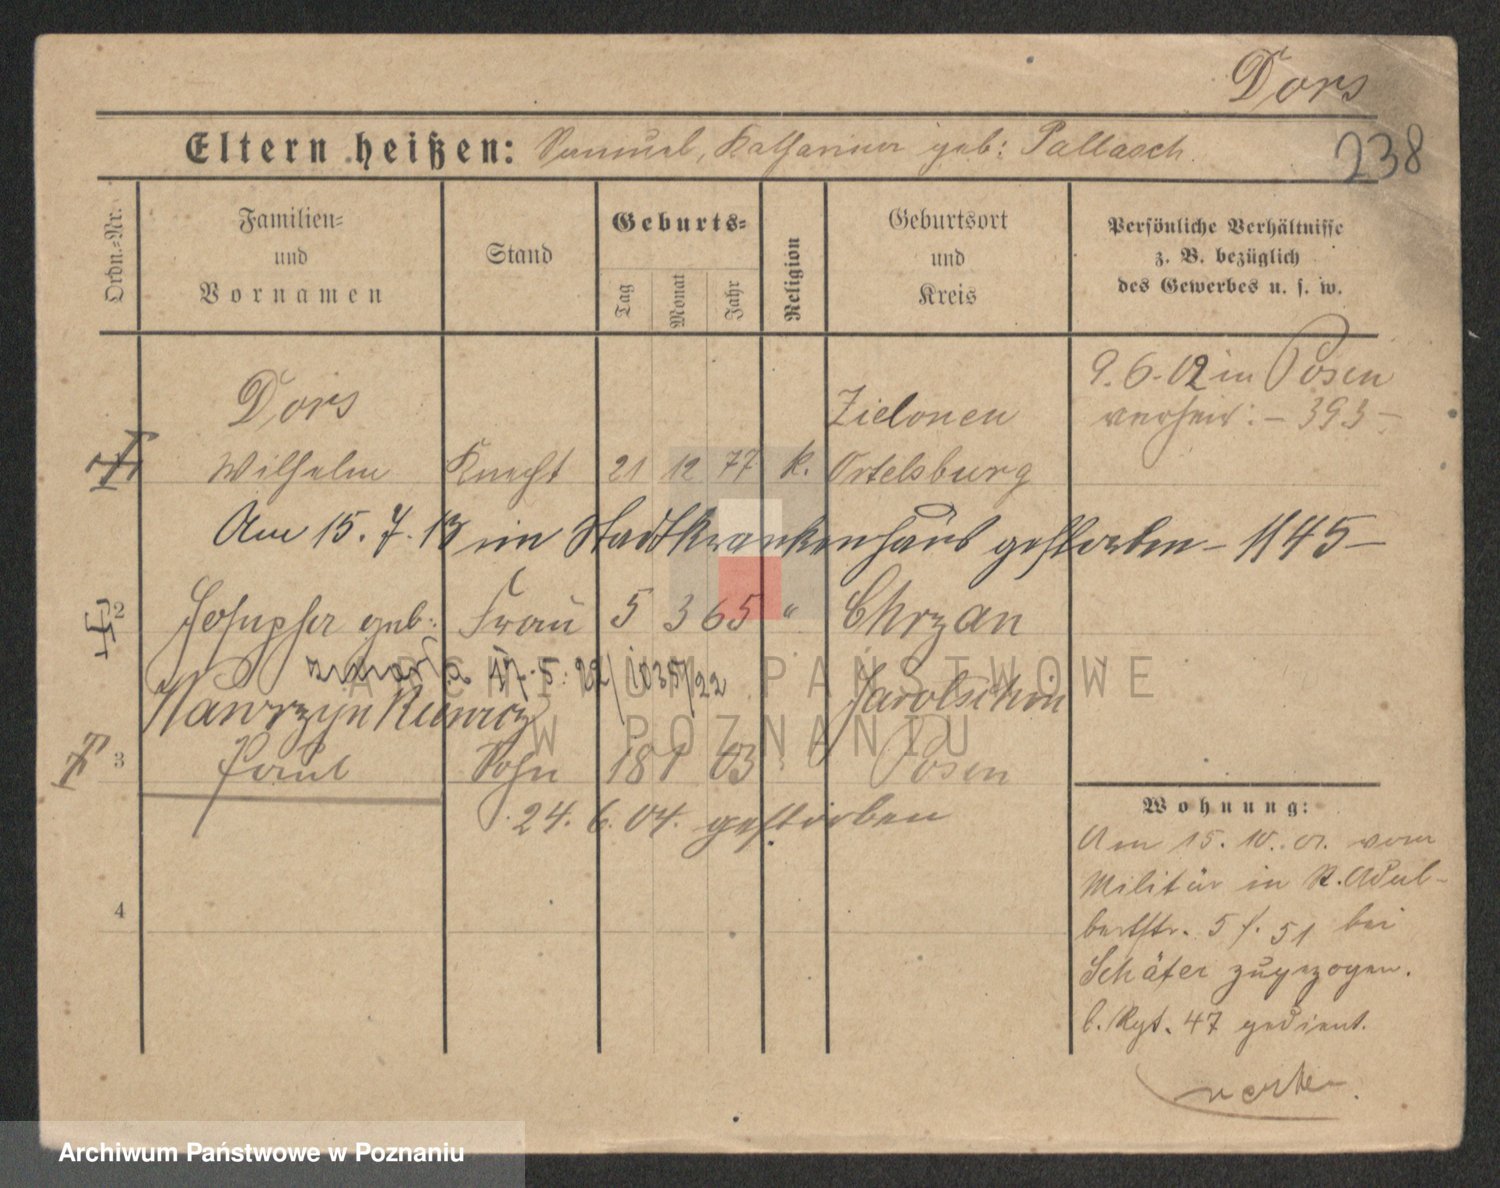 Dors
Eltern heißen: Samuel, Katharina geb: Pallasch.
238
Ordn.-Nr.
Familien- und Vornamen
Stand
Geburts-
Tag
Monat
Jahr
Religion
Geburtsort und Kreis
Persönliche Verhältnisse
z. B. bezüglich
des Gewerbes u. s. w.
9.6.02 in Posen
verheir: - 393 -
Dors
Zielonen
Wilhelm Knecht 21 12 77 k. Ortelsburg
Am 15.7.13 im Stadtkrankenhaus gestorben - 1145 -
2 Josepha geb: Frau 5 3 65 " Chrzan
zmarła 17.5.22/1035/22
Wawrzyn Jarotschin
3 Paul Sohn 18 1 03 Posen
24.6.04. gestorben
4
Wohnung:
Am 15.10.01. vom
Militär in St. Adal-
bertstr. 5 f. 51 bei
Schäfer zugezogen.
b. Rgt. 47 gedient.
ARCHIWUM PAŃSTWOWE
W POZNANIU
Archiwum Państwowe w Poznaniu